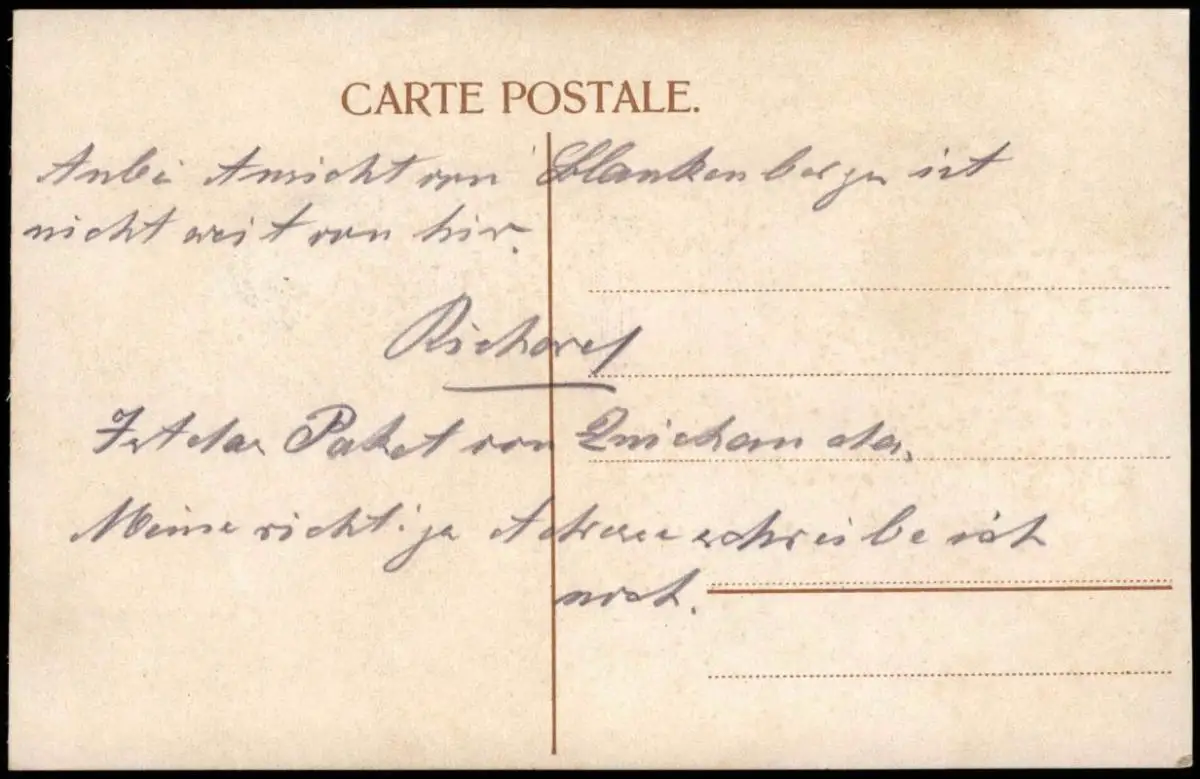 CARTE POSTALE.
Anbei Ansicht von Blankenberge ist
nicht weit von hir.
Richard
Ist das Paket von da,
Meine richtige Adresse schreibe ich
noch.